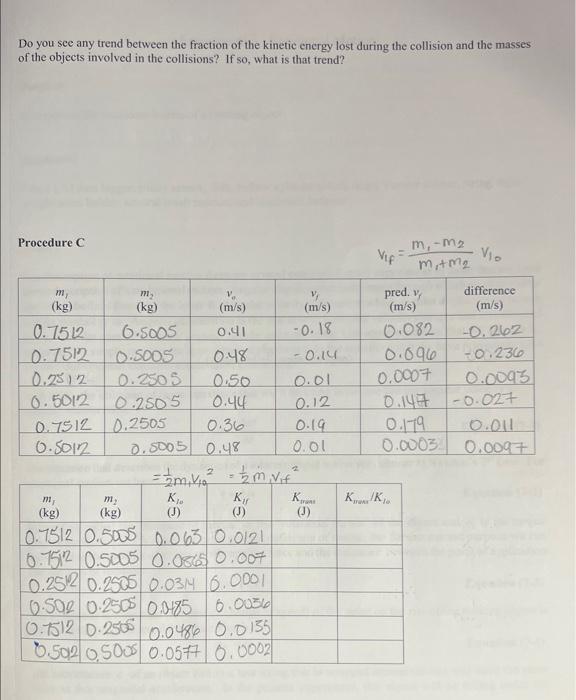 Do you see any trend between the fraction of the kinetic energy lost during the collision and the masses
of the objects involved in the collisions? If so, what is that trend?
Procedure C
V1f = (m1 - m2) / (m1 + m2) V1o
m1 (kg) m2 (kg) vo (m/s) vf (m/s) pred. vf (m/s) difference (m/s)
0.7512 0.5005 0.41 -0.18 0.082 -0.262
0.7512 0.5005 0.48 -0.14 0.096 -0.236
0.2512 0.2505 0.50 0.01 0.0007 0.0093
0.5012 0.2505 0.44 0.12 0.147 -0.027
0.7512 0.2505 0.36 0.19 0.179 0.011
0.5012 0.5005 0.48 0.01 0.0003 0.0097
= 1/2 m1 V1o² = 1/2 m1 V1f²
m1 (kg) m2 (kg) K1o (J) K1f (J) Ktrans (J) Ktrans/K1o
0.7512 0.5005 0.063 0.0121
0.7512 0.5005 0.0865 0.007
0.2512 0.2505 0.0314 0.0001
0.5012 0.2505 0.0485 0.0036
0.7512 0.2505 0.0486 0.0135
0.5012 0.5005 0.0577 0.0002